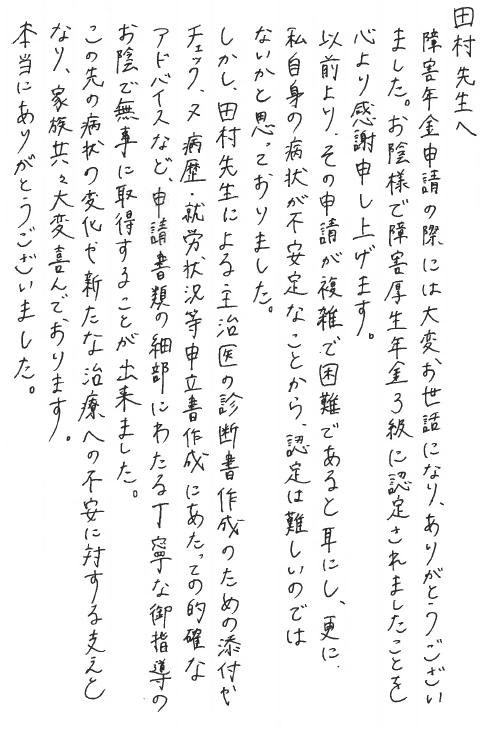 田村先生へ
障害年金申請の際には大変、お世話になり、ありがとうござい
ました。お陰様で障害厚生年金3級に認定されましたことを
心より感謝申し上げます。
以前より、その申請が複雑で困難であると耳にし、更に、
私自身の病状が不安定なことから、認定は難しいのでは
ないかと思っておりました。
しかし、田村先生による主治医の診断書作成のための添付や
チェック、又病歴・就労状況等申立書作成にあたっての的確な
アドバイスなど、申請書類の細部にわたる丁寧な御指導の
お陰で無事に取得することが出来ました。
この先の病状の変化や新たな治療への不安に対する支えと
なり、家族共々大変喜んでおります。
本当にありがとうございました。